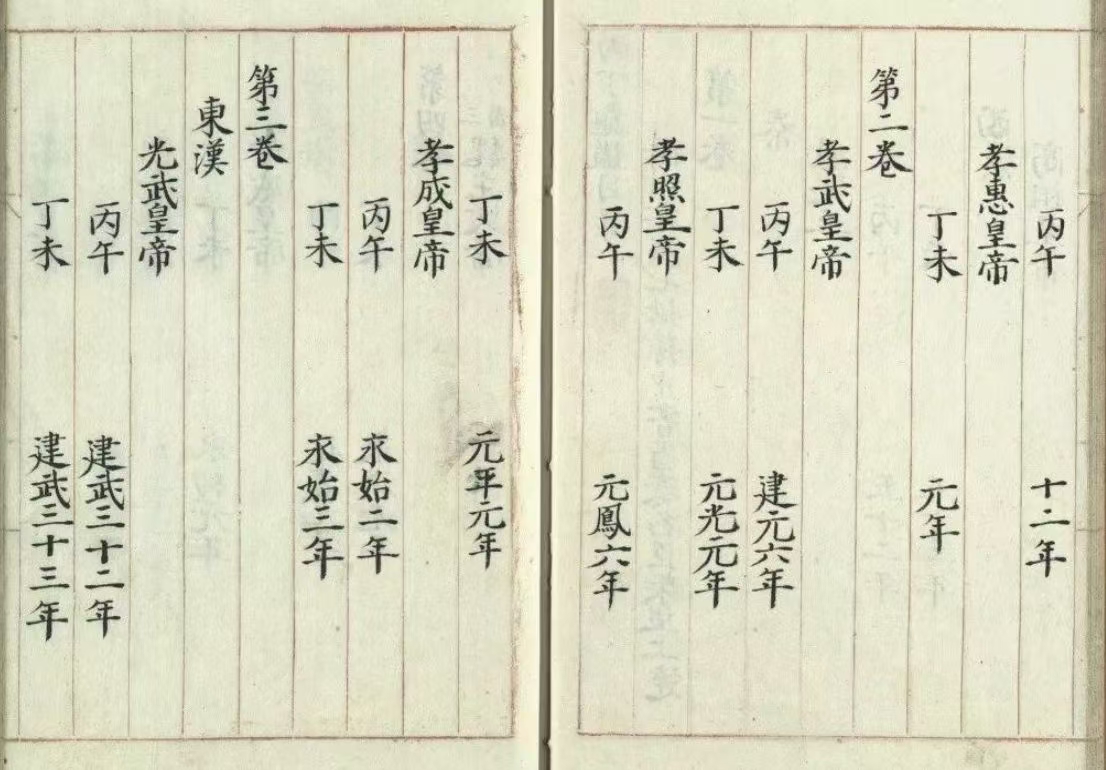 丙午 十二年
孝惠皇帝
丁未 元年
第二卷
孝武皇帝
丙午 建元六年
丁未 元光元年
孝照皇帝
丙午 元鳳六年
丁未 元平元年
孝成皇帝
丙午 永始二年
丁未 永始三年
第三卷
東漢
光武皇帝
丙午 建武三十二年
丁未 建武三十三年